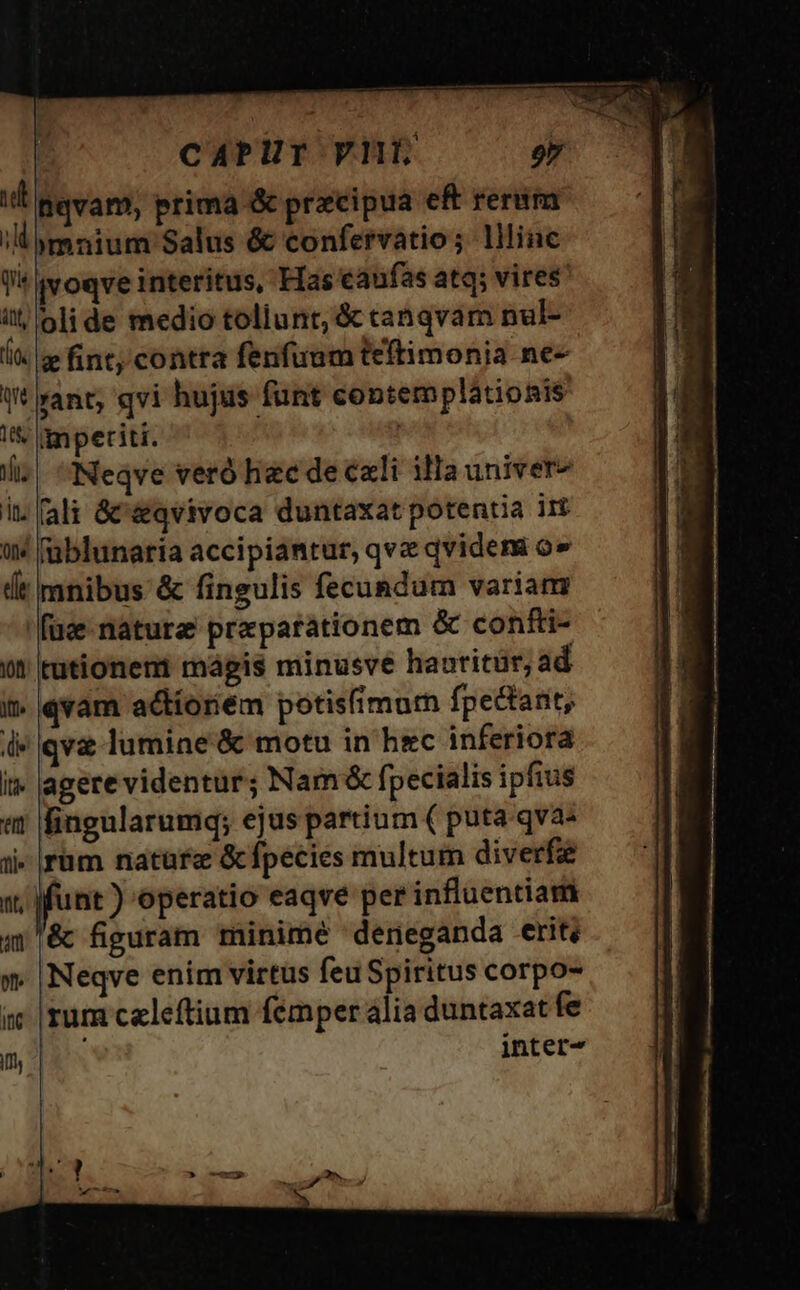 CAPUT VIII. 97
nqvam, prima & præcipua eſt rerum
omnium Salus & conſervatio; Illinc
qvoqve interitus, Has cauſas atq; vires
soli de medio tollunt, & tanqvam nul-
læ ſint, contra ſenſuum teſtimonia ne-
gant, qvi hujus ſunt contemplationis
imperiti.
Neqve veró hæc de cæli illa univer-
ſali & æqvivoca duntaxat potentia in
ſublunaria accipiantur, qvæ qvidem o-
mnibus & ſingulis ſecundum variam
ſuæ naturæ præparationem & conſti-
tutionem magis minusve hauritur, ad
qvam actionem potisſimum ſpectant,
qvæ lumine & motu in hæc inferiora
agere videntur; Nam & ſpecialis ipſius
ſingularumq; ejus partium ( puta qva-
rum naturæ & ſpecies multum diverſæ
ſunt ) operatio eaqve per influentiam
& figuram minimé deneganda erit;
Neqve enim virtus ſeu Spiritus corpo-
rum cæleſtium ſemper alia duntaxat ſe
inter-